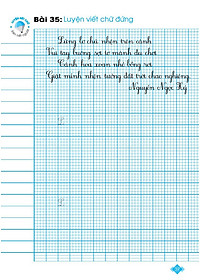 Bài 35: Luyện viết chữ đứng
Lửng lơ chú nhện trên cành
Vui tay buông sợi tơ mành đu chơi
Cánh hoa xoan nhỏ bỗng rơi
Giật mình nhện tưởng đất trời chao nghiêng.
Nguyễn Ngọc Ký
L
L